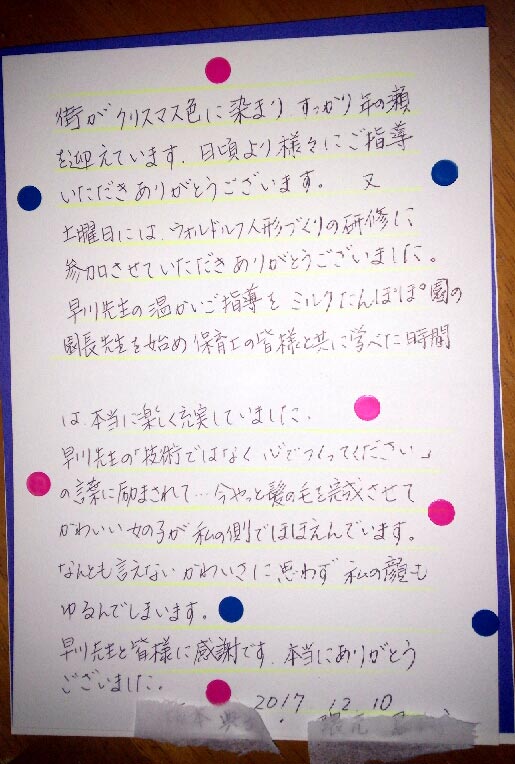 街がクリスマス色に染まり すっかり 年の瀬
を迎えています。日頃より様々にご指導
いただきありがとうございます。 又
土曜日には、ウォルドルフ人形づくりの研修に
参加させていただきありがとうございました。
早川先生の温かいご指導を ミルクたんぽぽ園の
園長先生を始め保育士の皆様と共に学べた時間
は、本当に楽しく充実していました。
早川先生の「技術ではなく 心でつくってください」
の言葉に励まされて…今やっと髪の毛を完成させて
かわいい女の子が 私の側でほほえんでいます。
なんとも言えない かわいさに思わず 私の顔も
ゆるんでしまいます。
早川先生と皆様に感謝です。本当にありがとう
ございました。
2017. 12. 10